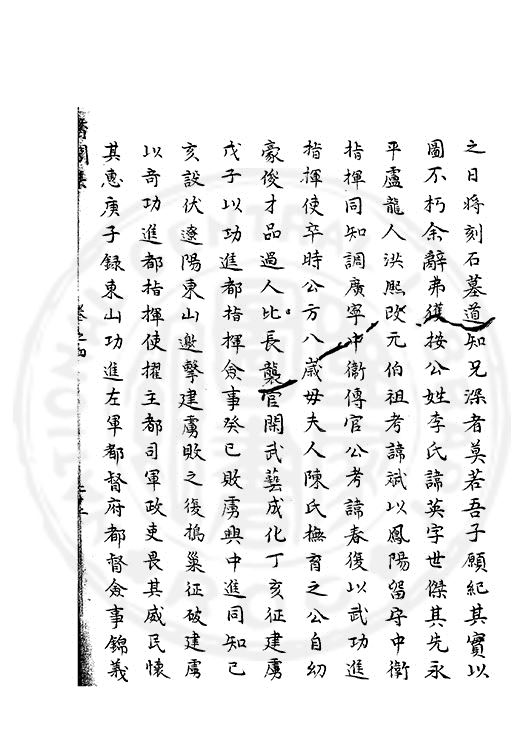 之日將刻石墓道知兄深者莫若吾子願紀其實以
圖不朽余辭弗獲按公姓李氏諱英字世傑其先永
平盧龍人洪熙改元伯祖考諱斌以鳳陽留守中衛
指揮同知調廣寧中衛傳官公考諱春後以武功進
指揮使卒時公方八歲母夫人陳氏撫育之公自幼
豪俊才品過人比長襲官閑武藝成化丁亥征建虜
戊子以功進都指揮僉事癸巳敗虜興中進同知己
亥設伏遼陽東山邀擊建虜敗之後搗巢征破建虜
以奇功進都指揮使擢主都司軍政吏畏其威民懷
其惠庚子錄東山功進左軍都督府都督僉事錦義
醫閭集